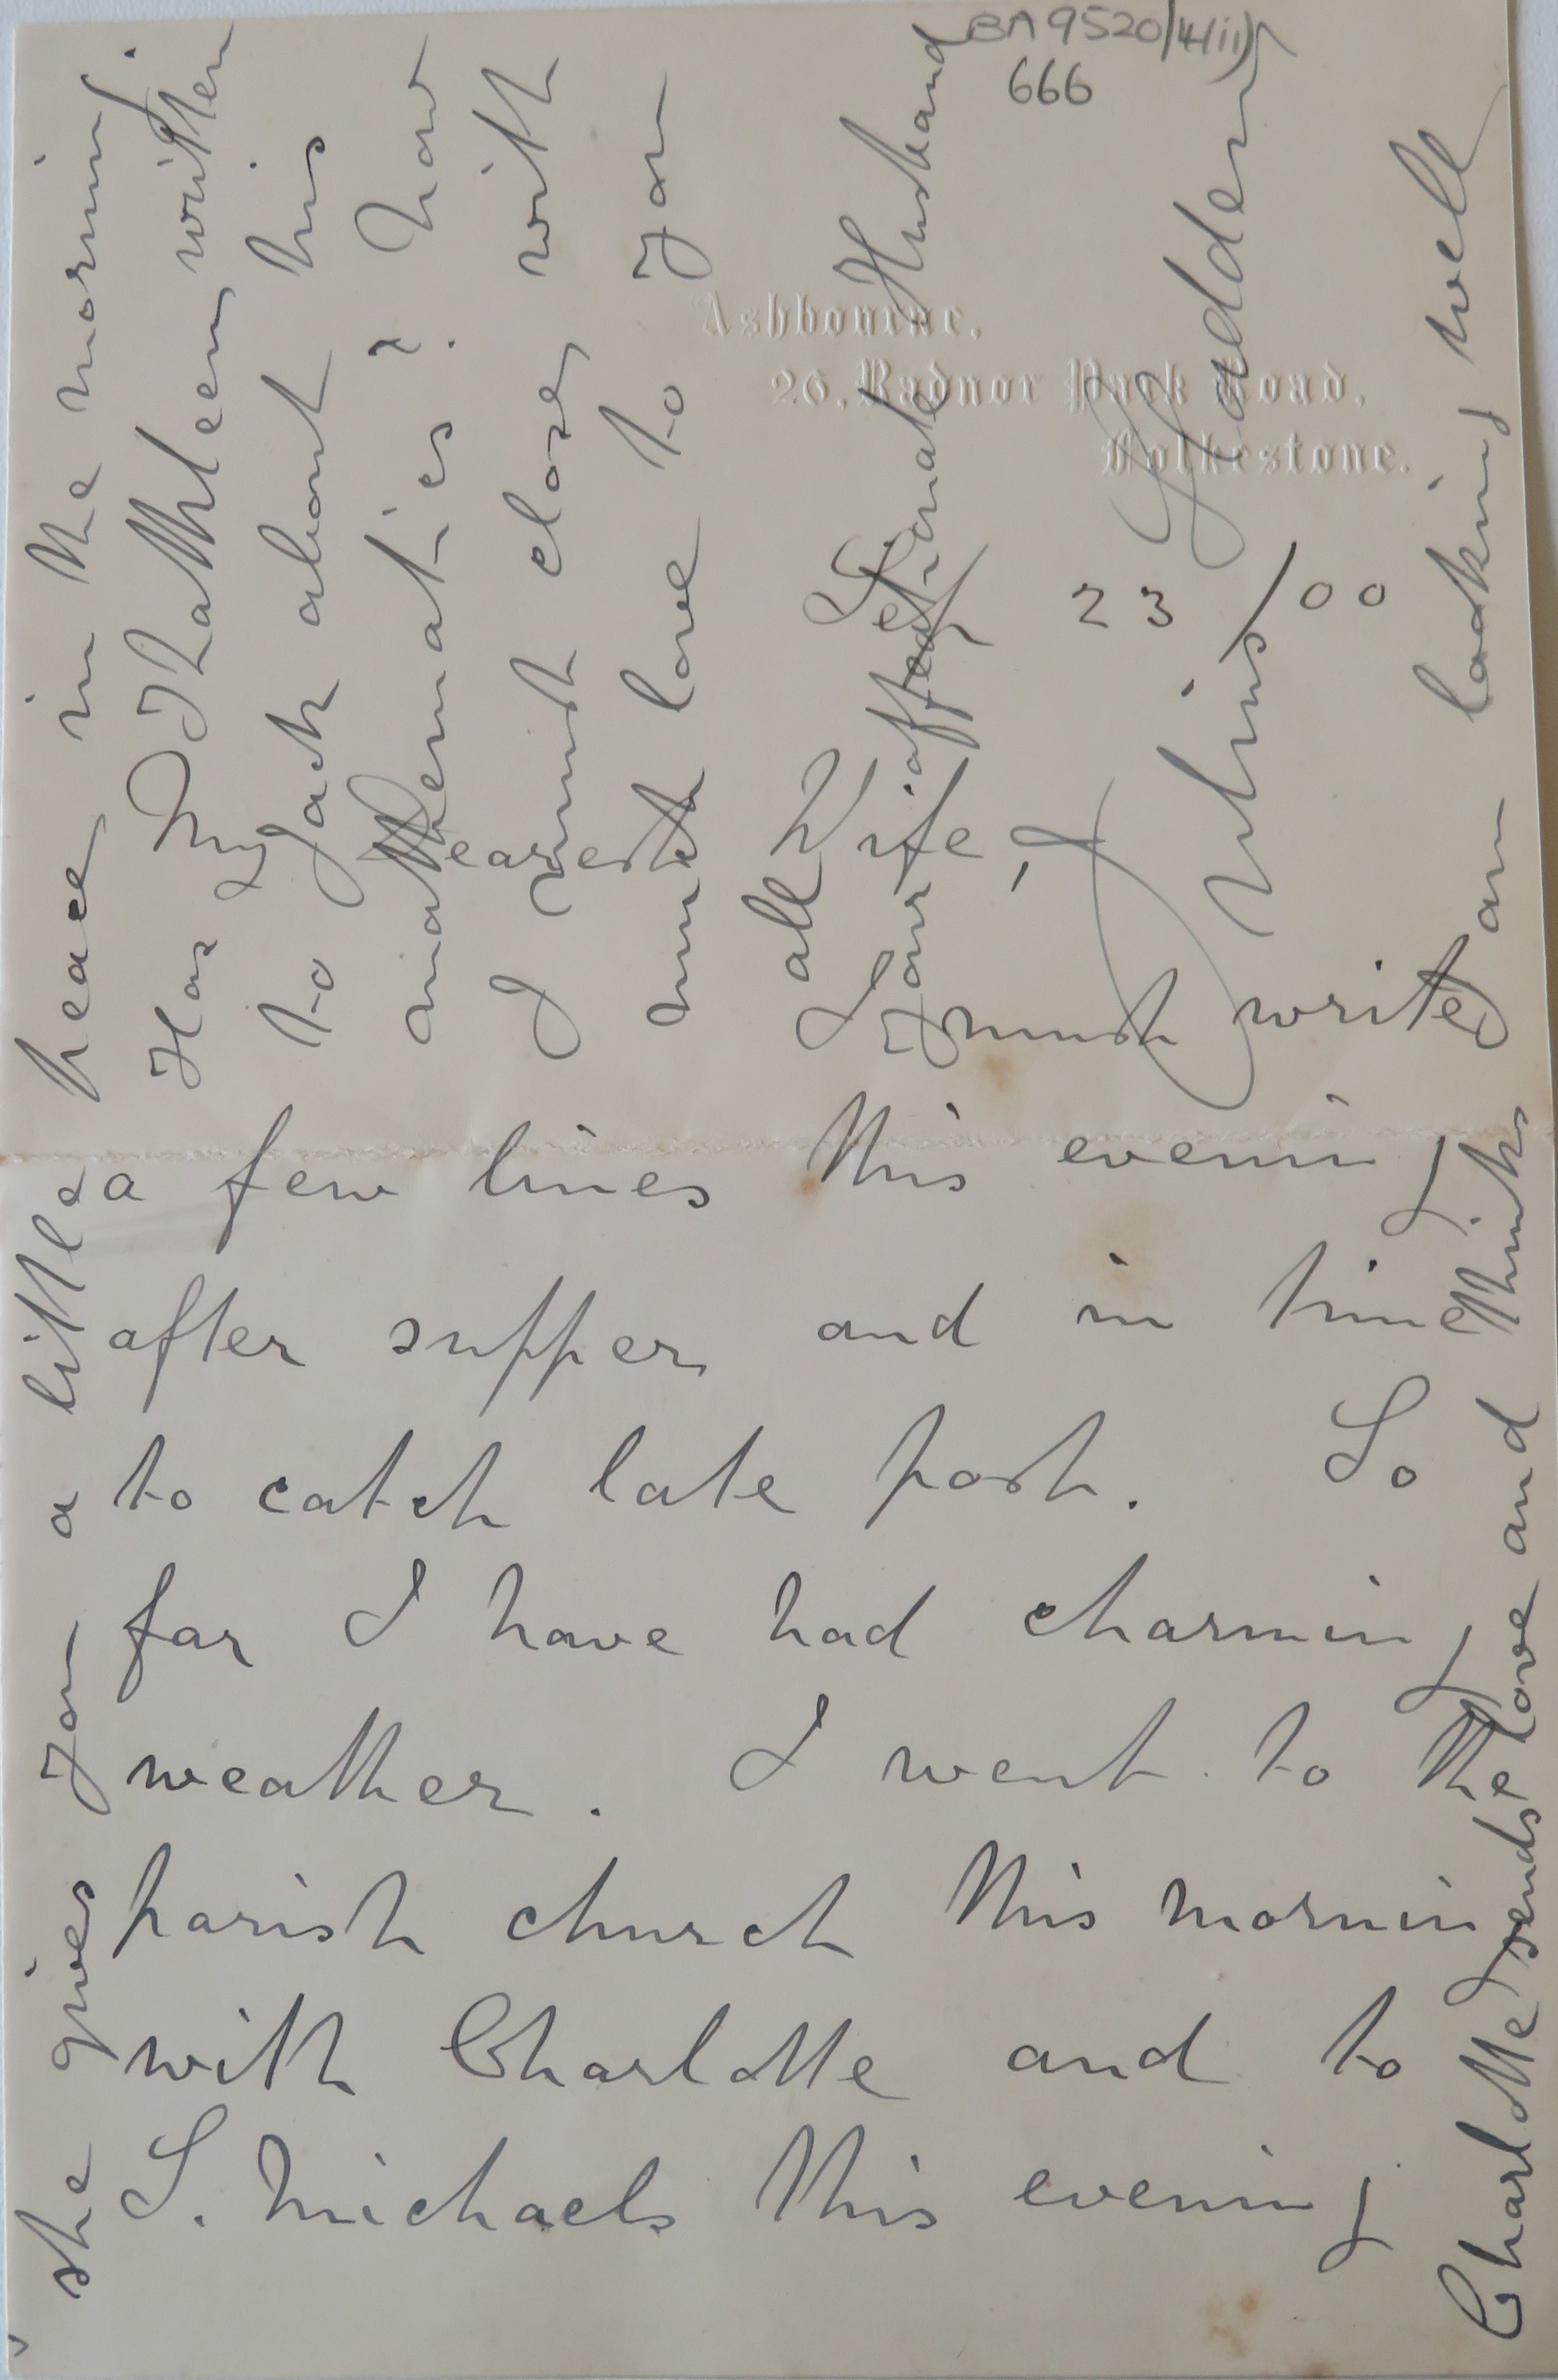 BA9520/4(ii)
666
Ashbourne,
26, Radnor Park Road,
Folkestone.
Sep 23/00
My
Dearest Wife,
I must write
a few lines this evening
after supper and in time
to catch late post. So
far I have had charming
weather. I went to the
parish church this morning
with Charlotte and to
S. Michaels this evening
she gives you a little peace in the morning.
Has Kathleen written
to Jack about his
mathematics? Now
I must close with
much love to you
all
Your affectionate Husband
Julius Sladden
Charlotte sends love and thinks I am looking well